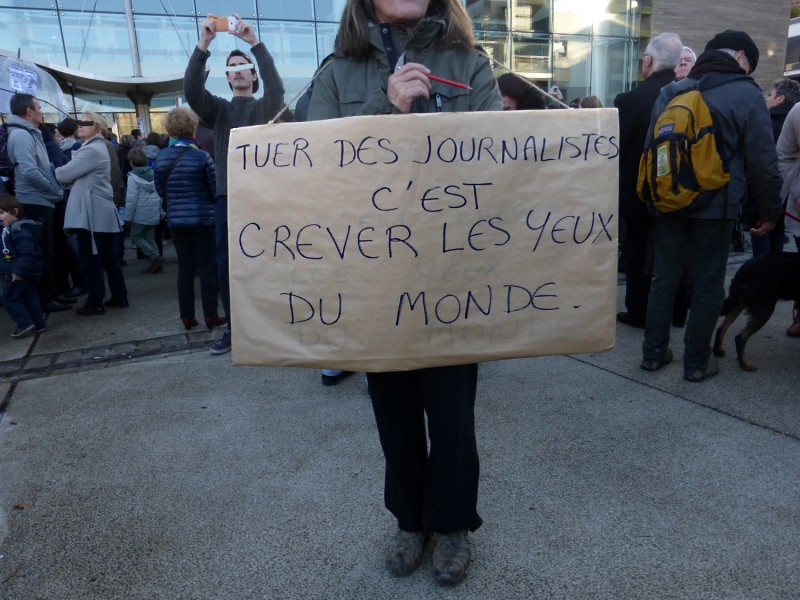 TUER DES JOURNALISTES
C'EST
CREVER LES YEUX
DU MONDE.